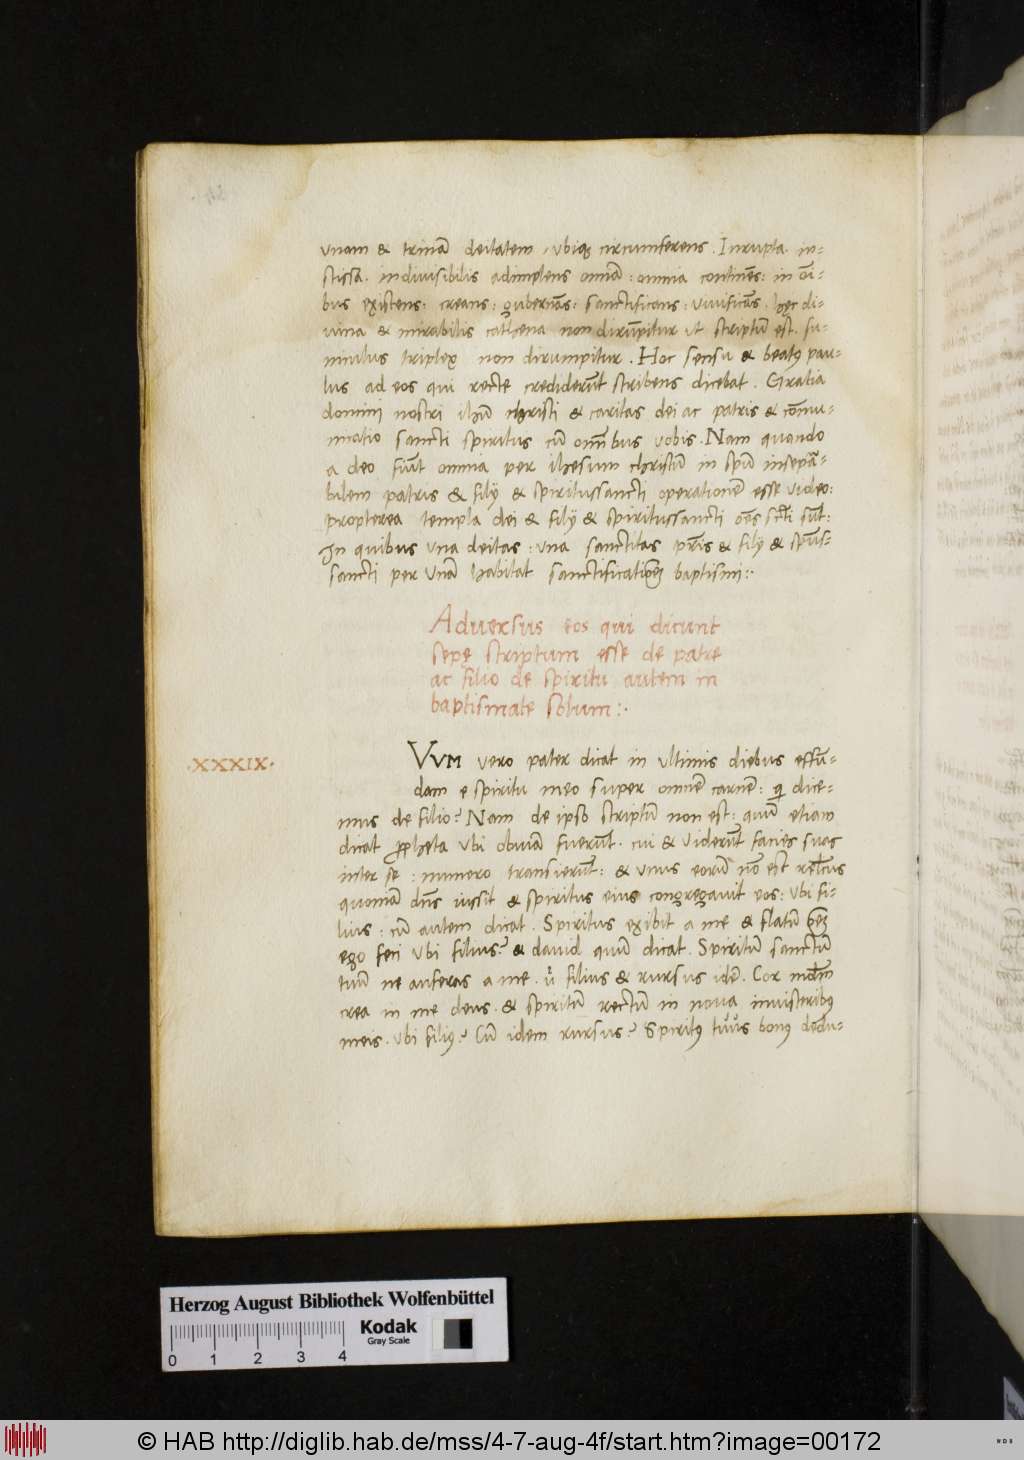 vnam & trinā deitatem, vbiqȝ circumferens. Inrupta. in-
scissa. indiuisibilis adimplens omīa: omnia continēs: in oī-
bus existens: creans: gubernās: sanctificans: viuificās. hęc di-
uina & mirabilis cathena non dirūpitur vt scriptū est. fu-
niculus triplex non dirumpitur. Hoc sensu & beatꝰ pau-
lus ad eos qui recte crediderūt scribens dicebat. Gratia
domini nostri ihū christi & caritas dei ac patris & cōmu-
nicatio sancti spiritus cū omībus vobis. Nam quando
a deo fiūt omnia per ihesum christū in spū insepā-
bilem patris & filÿ & spiritussancti operationē esse video:
propterea templa dei & filÿ & spiritussancti oēs scti sūt:
In quibus vna deitas: vna sanctitas pris & filÿ & spūs-
sancti per vnā habitat sanctificationē baptismi:.
Aduersus eos qui dicunt
sepę scriptum esse de patre
ac filio de spiritu autem in
baptismate solum:.
.XXXIX.
VVM vero pater dicat in vltimis diebus effū-
dam e spiritu meo super omnē carnē: qi dice-
mus de filio? Nam de ipso scriptū non est: quū etiam
dicat ꝓpheta vbi obuiā fuerūt. cui & viderūt facies suas
inter se: numero transierūt: & vnus eorū nō est relictus
quoniā dn̄s iussit & spiritus eius congregauit eos: vbi fi-
lius: cū autem dicat. Spiritus exibit a me & flatū omnē
ego feci vbi filius? & dauid quū dicat. Spiritū sanctū
tuū ne auferas a me. ů filius & rursus idē. Cor mūdum
crea in me deus. & spiritū rectū in noua inuisceribꝰ
meis. vbi filiꝰ? Cū idem rursus? Spiritꝰ tuus bonꝰ dedu-
Herzog August Bibliothek Wolfenbüttel
Kodak
Gray Scale
0 1 2 3 4
© HAB http://diglib.hab.de/mss/4-7-aug-4f/start.htm?image=00172